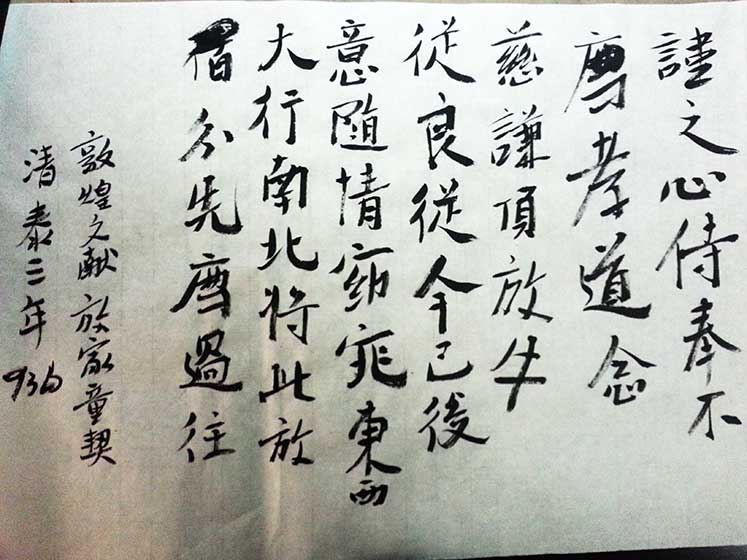 謹之心侍奉不
孝道念
慈謙頂放牛
從良從今已後
意隨情窈窕東西
大行南北將此放
分先過往
敦煌文献放家童契
清泰三年 936